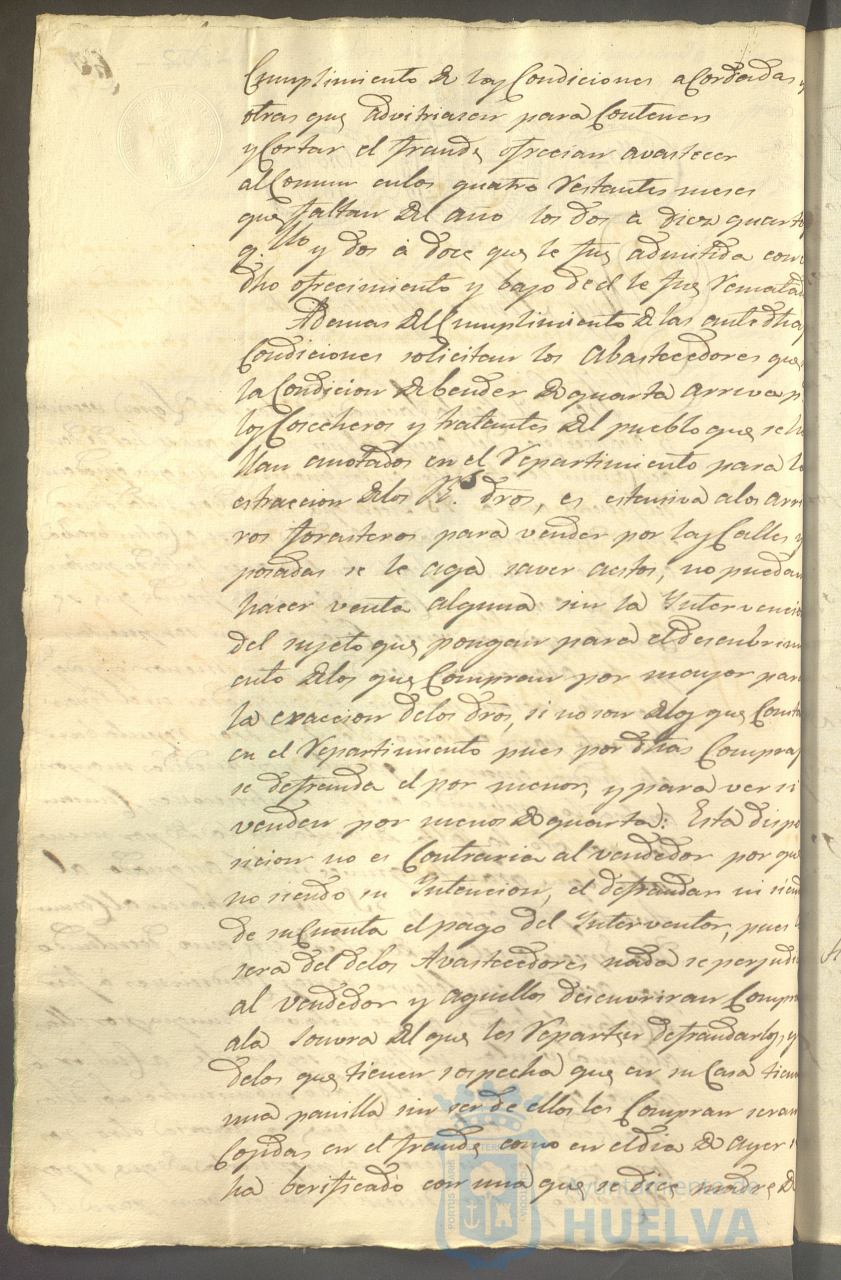 Cumplimiento de las Condiciones acordadas y
otras que advitriasen para Contener
y Cortar el fraude ofrecian avastecer
al Comun en los quatro restantes meses
que faltan del año los dos a diez quartos
q.llo y dos á doce que le fue admitida con
dho ofrecimiento y bajo de el le fue rematad
Ademas del Cumplimiento de las antedhas
Condiciones solicitan los Abastecedores que
la Condicion de bender de quarta arriva p
los Cosecheros y tratantes del pueblo que se ha
llan anotados en el repartimiento para la
estraccion de los R.s dros, es estensiva a los arri
ros forasteros para vender por las Calles y
posadas se le aga saver aestos, no puedan
hacer venta alguna sin la Intervencio
del sujeto que pongan para el descubrim
ento de los que Compran por mayor par
la exaccion de los dros, si no son de los que Consta
en el repartimiento pues por dhas Compras
se defrauda el por menor, y para ver si
venden por menos de quarta: Esta dispo
sicion no es Contraria al vendedor por que
no siendo su Intencion, el defraudar ni siend
de su Cuenta el pago del Interventor, pues
sera del de los Avastecedores nada se perjudi
al vendedor y aquellos descuvriran Compr
ala sonvra del que les reparten defraudarlos, y
de los que tienen sospecha que en su Casa tien
una panilla sin ser de ellos les Compran seran
Cojidas en el fraude como en el dia de ayer
ha berificado con una que se dice madre de
Ayuntamiento de
HUELVA